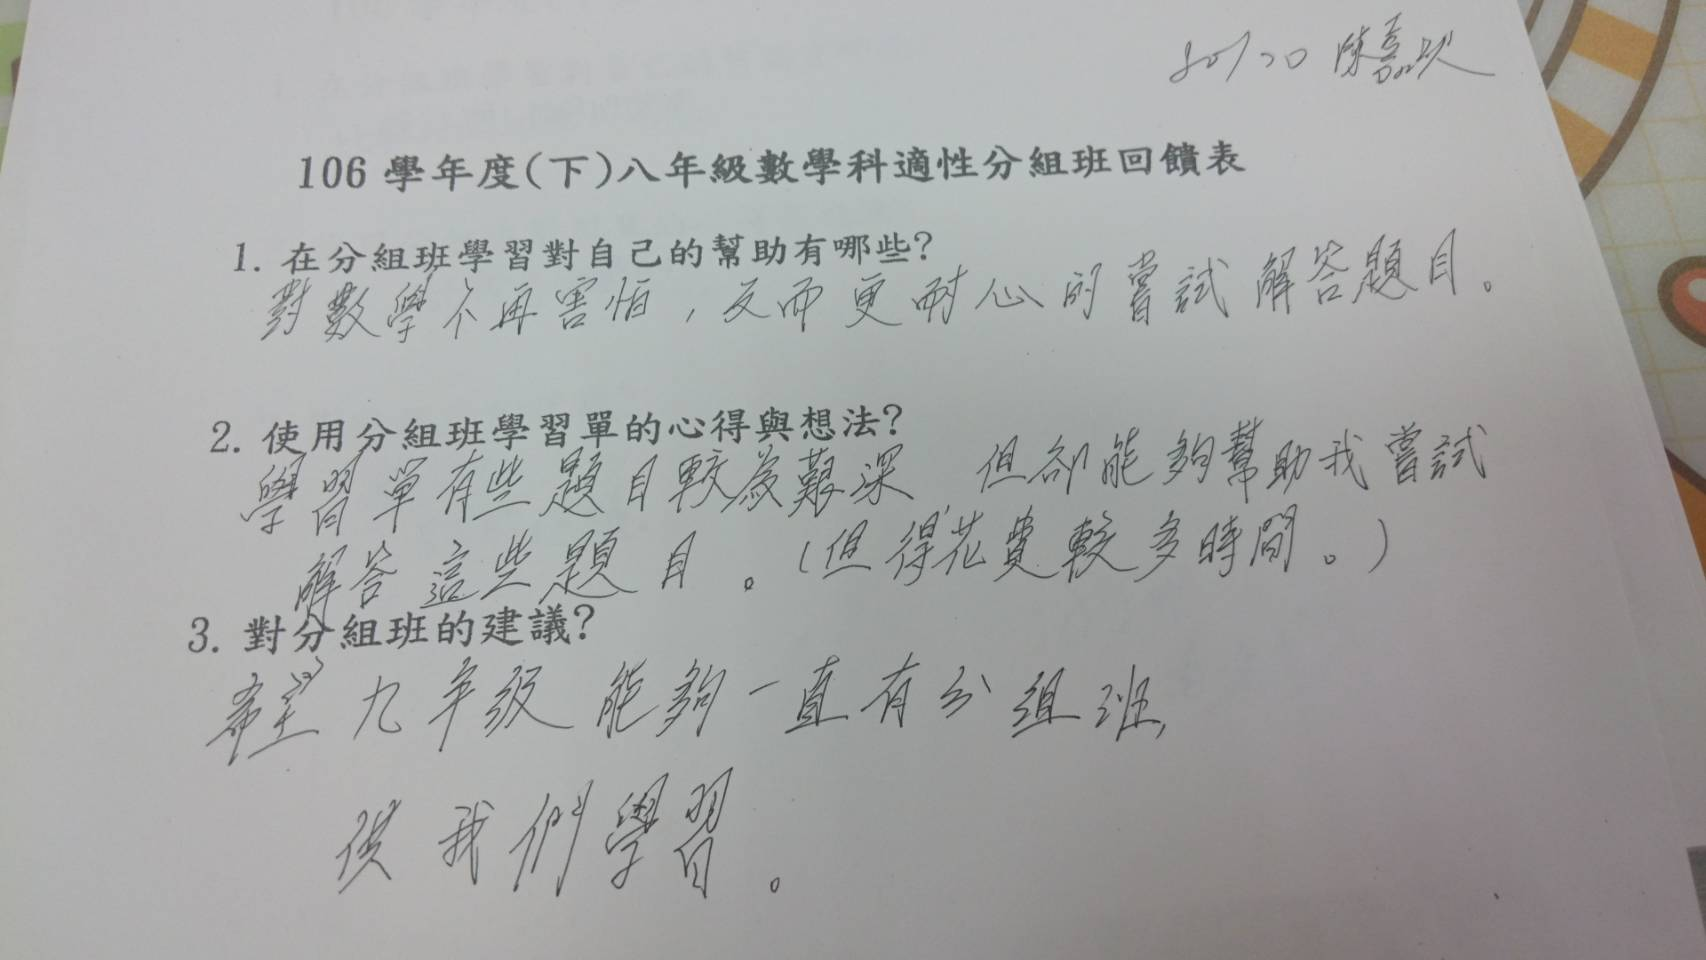 80120 陳嘉欣
106 學年度(下)八年級數學科適性分組班回饋表
1. 在分組班學習對自己的幫助有哪些?
對數學不再害怕，反而更耐心的嘗試解答題目。
2. 使用分組班學習單的心得與想法?
學習單有些題目較為艱深 但卻能夠幫助我嘗試
解答這些題目。(但得花費較多時間。)
3. 對分組班的建議?
希望九年級能夠一直有分組班，
供我們學習。